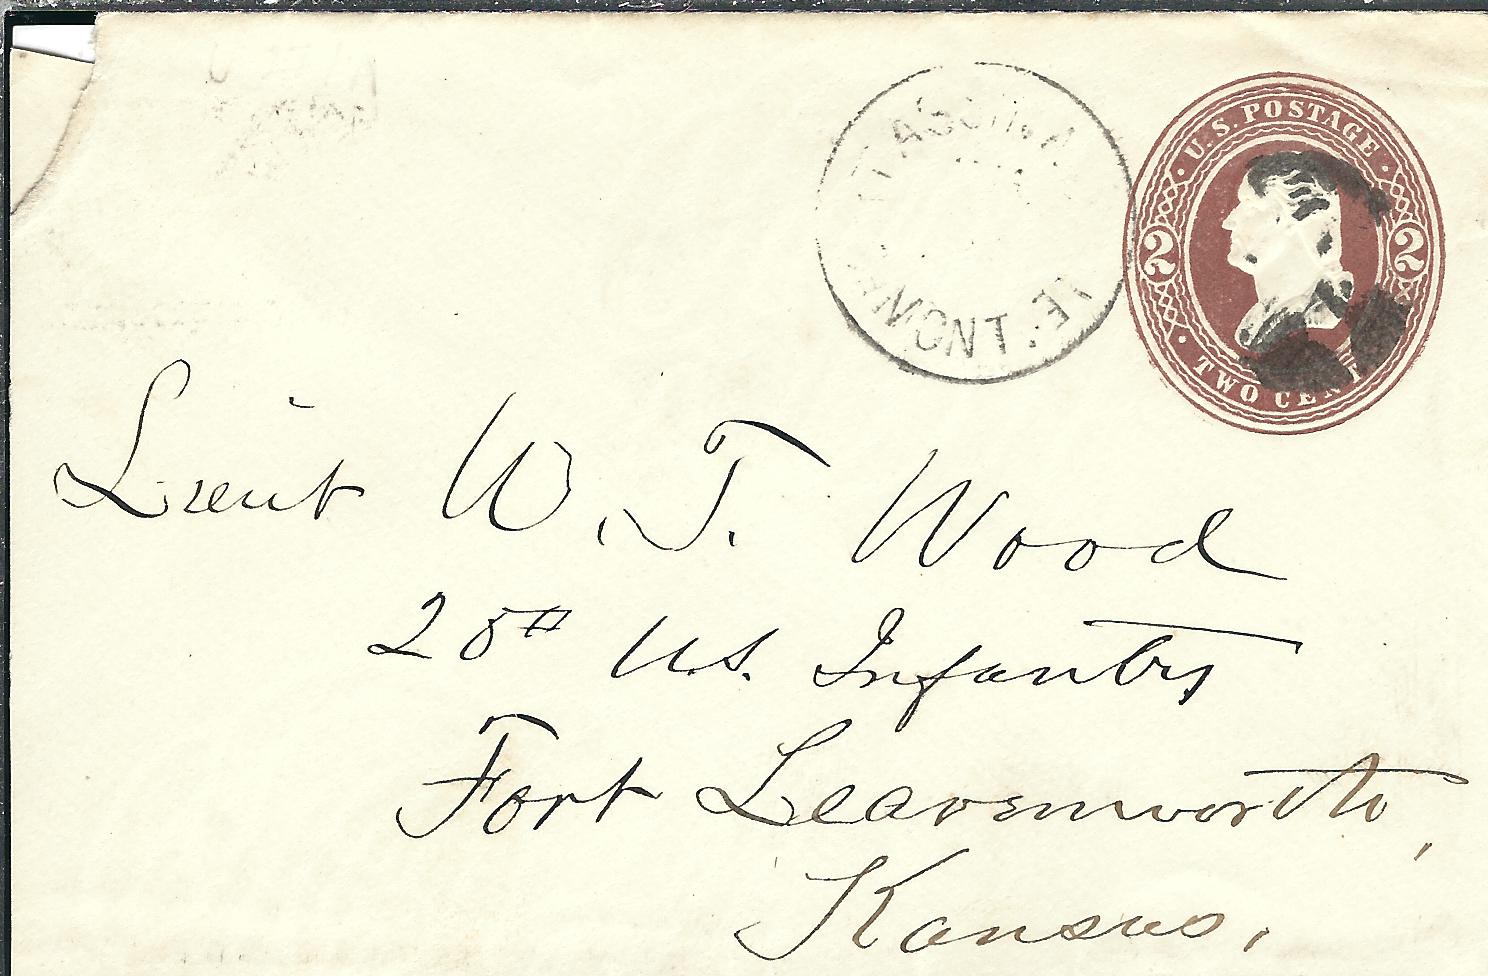 U.S. POSTAGE
2 2
TWO CENT
MONT. TE
Lieut W. T. Wood
20th U.S. Infantry
Fort Leavenworth,
Kansas,